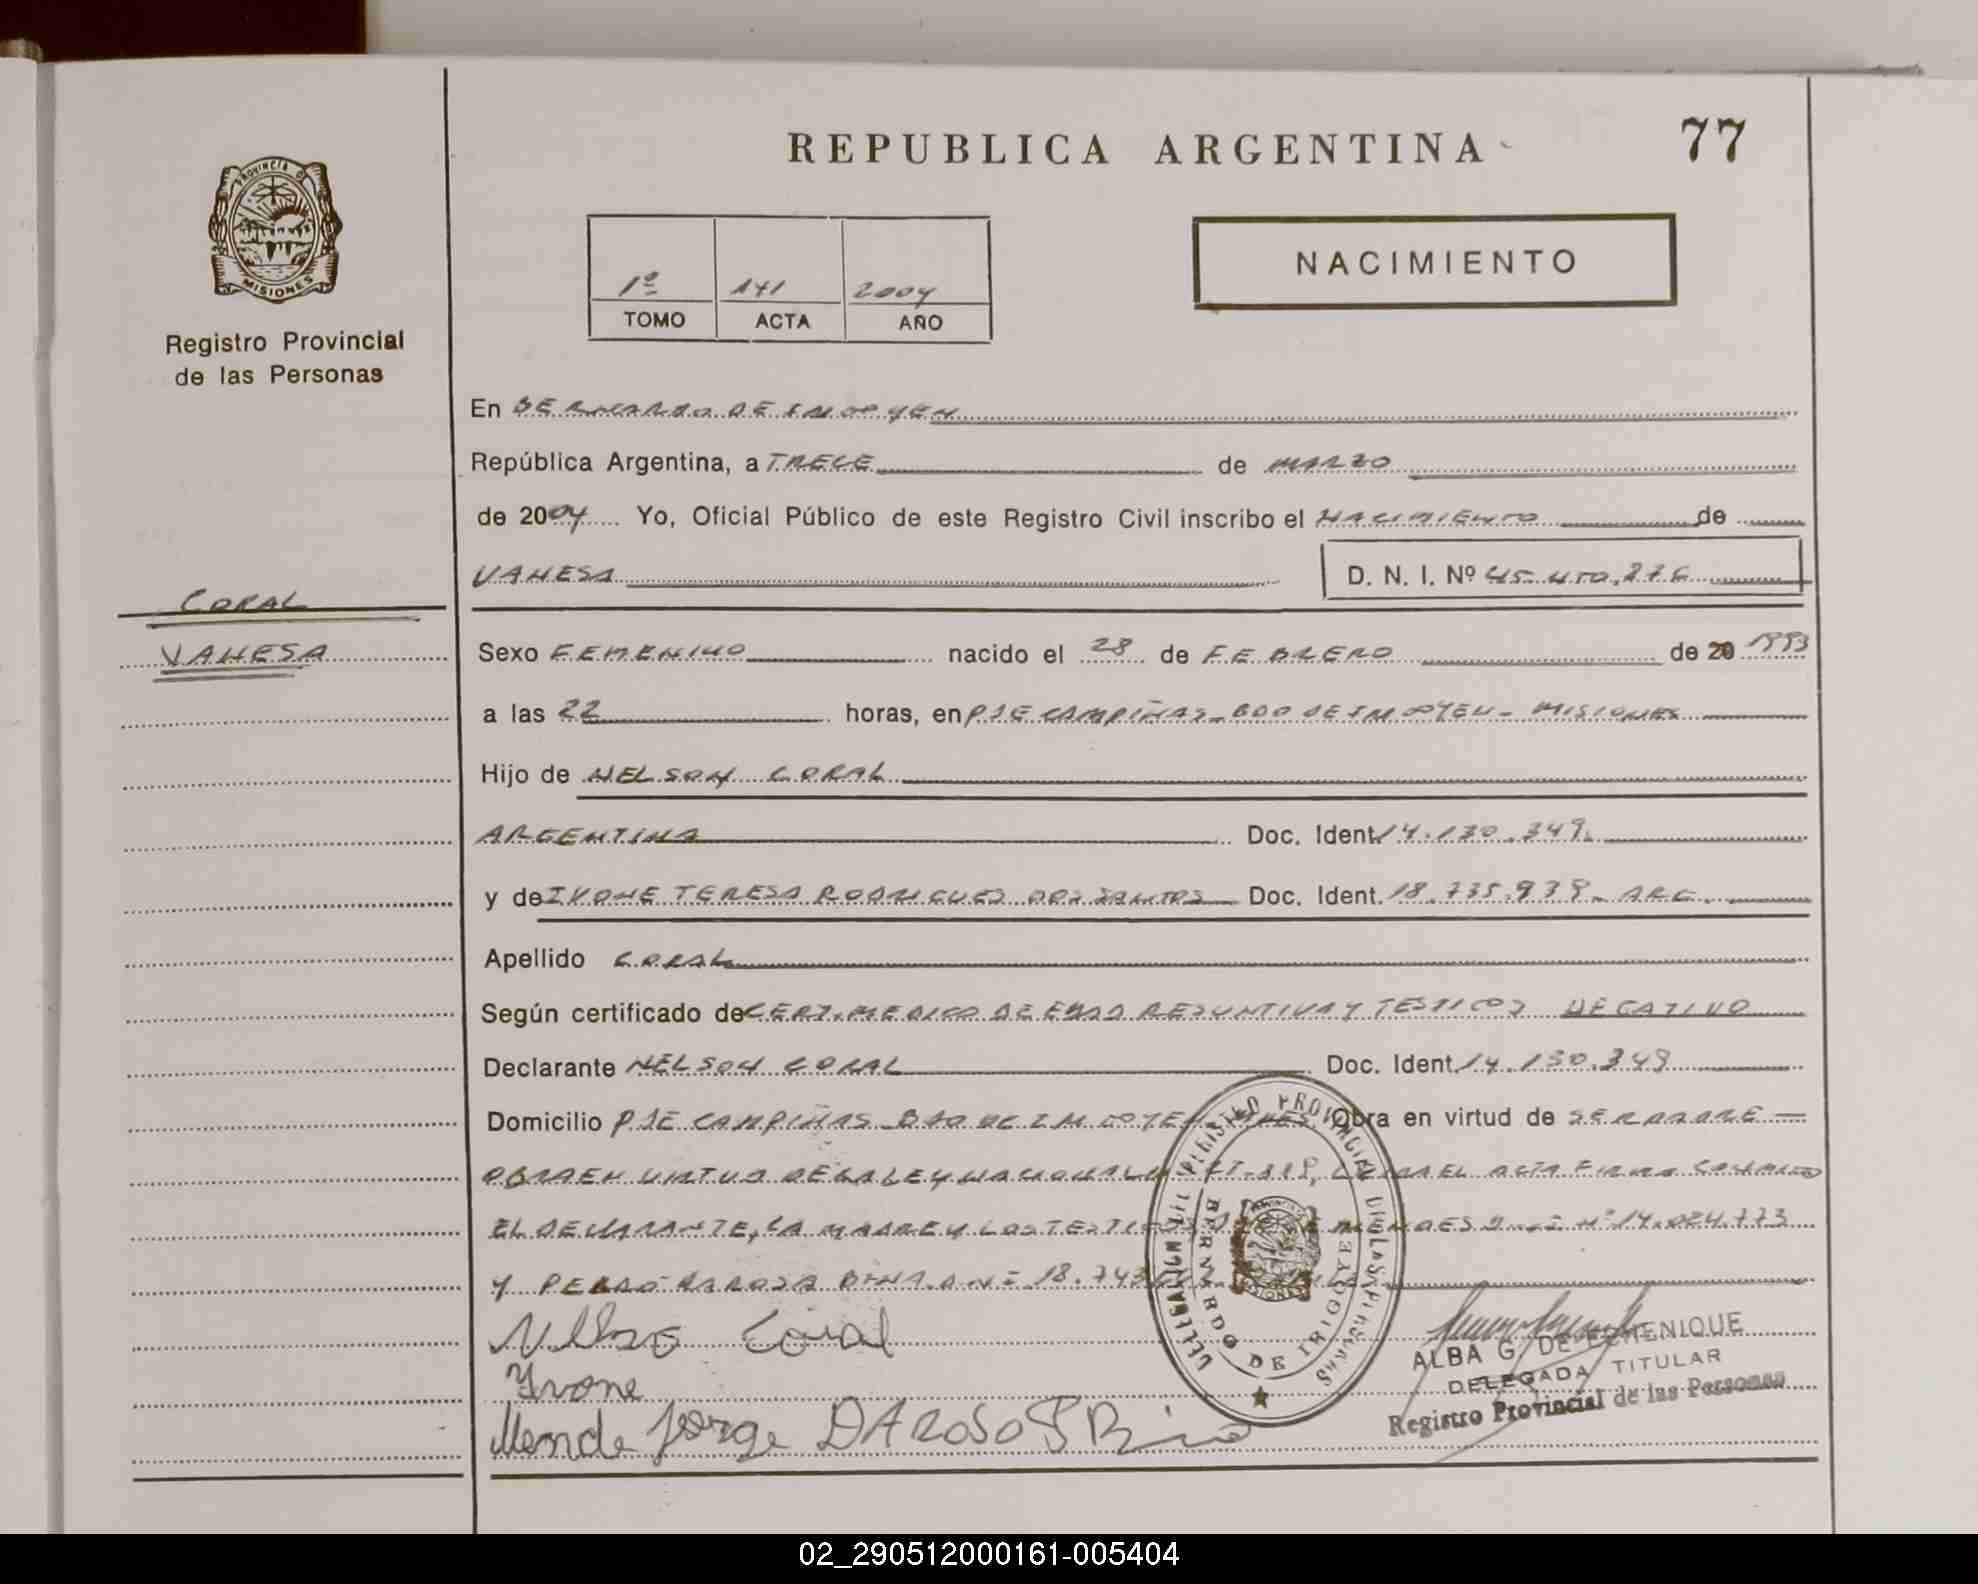 REPUBLICA ARGENTINA
77
PROVINCIA DE
MISIONES
Registro Provincial
de las Personas
1º 141 2004
TOMO ACTA AÑO
NACIMIENTO
En BERNARDO DE IRIGOYEN
República Argentina, a TRECE de MARZO
de 2004 Yo, Oficial Público de este Registro Civil inscribo el NACIMIENTO de
VANESA D. N. I. Nº
CORAL
VANESA
Sexo FEMENINO nacido el 28 de FEBRERO de 20 1993
a las 22 horas, en PJE CAMPIÑAS - BDO DE IRIGOYEN - MISIONES
Hijo de NELSON CORAL
ARGENTINA Doc. Ident. 14.130.349.
y de IVONE TERESA RODRIGUES DOS SANTOS Doc. Ident. 18.735.939 - ARG.
Apellido CORAL
Según certificado de CERT. MEDICO DE EDAD PRESUNTIVA Y TESTIGOS NEGATIVO
Declarante NELSON CORAL Doc. Ident. 14.130.349
Domicilio PJE CAMPIÑAS - BDO DE IRIGOYEN Obra en virtud de SER PADRE
OBRA EN VIRTUD DE LA LEY NACIONAL EL ACTA FIRMA
EL DECLARANTE, LA MADRE Y LOS TESTIGOS Nº 14.024.773
Y PEDRO
Coral
Ivone
Jorge
DELEGACION DEL REGISTRO PROVINCIAL DE LAS PERSONAS
BERNARDO DE IRIGOYEN
ALBA G. DE ECHENIQUE
DELEGADA TITULAR
Registro Provincial de las Personas
02_290512000161-005404